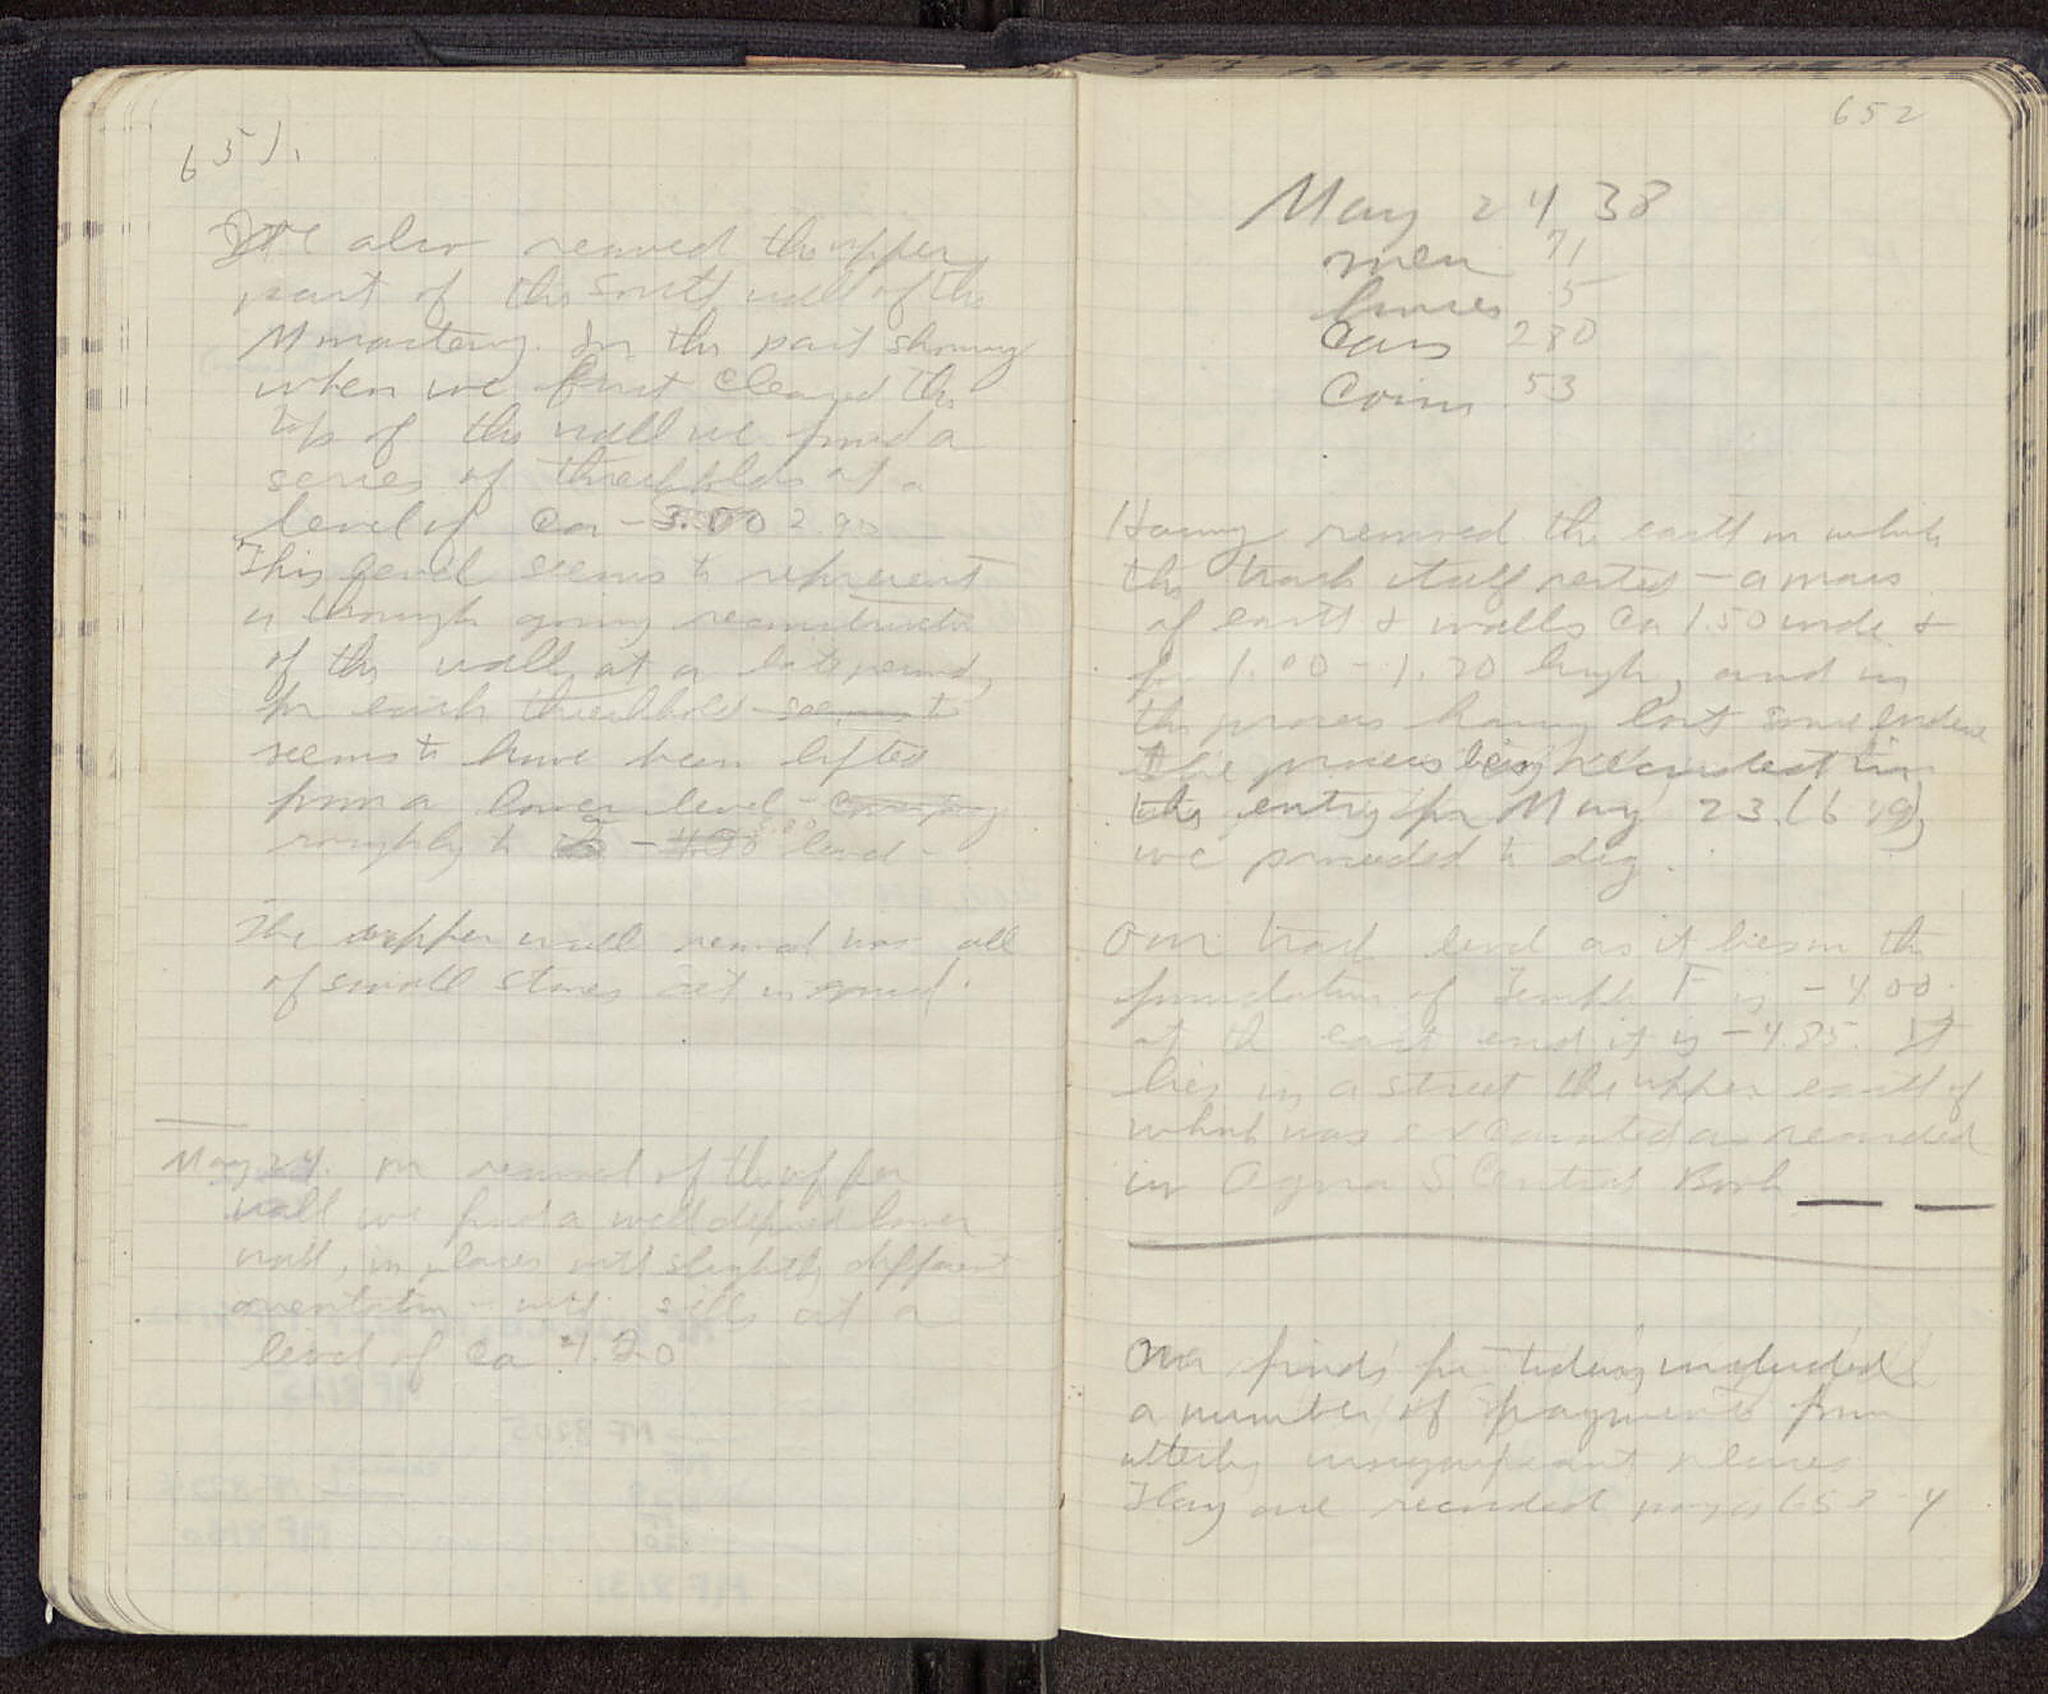 651.
We also removed the upper
part of the South wall of the
Monastery. In the part showing
when we first cleared the
top of the wall we found a
series of thresholds at a
level of ca - 3.00 2.90
This level seems to represent
a through going reconstruction
of the wall at a late period,
for each threshhold seems to
seems to have been lifted
from a lower level -
roughly to level -
The upper wall removed was all
of small stones set in mud.
May 24. On removal of the upper
wall we find a well defined lower
wall, in places with slightly different
orientation - with sills at a
level of ca 4.20
652
May 24, 38
men 71
horses 5
Cars 280
Coins 53
Having removed the earth on which
the track itself rested - a mass
of earth & walls ca 1.50 wide &
for 1.00 - 1.20 high, and in
the process having lost some
the process being recorded in
the entry for May 23
we proceeded to dig.
Our track level as it lies on the
foundation of Temple F is - 4.00;
at the east end it is - 4.85. It
lies in a street the upper earth of
which was excavated as recorded
in Agora S Central Book
Our finds for today included
a number of fragments from
utterly insignificant places
They are recorded pages 653-4